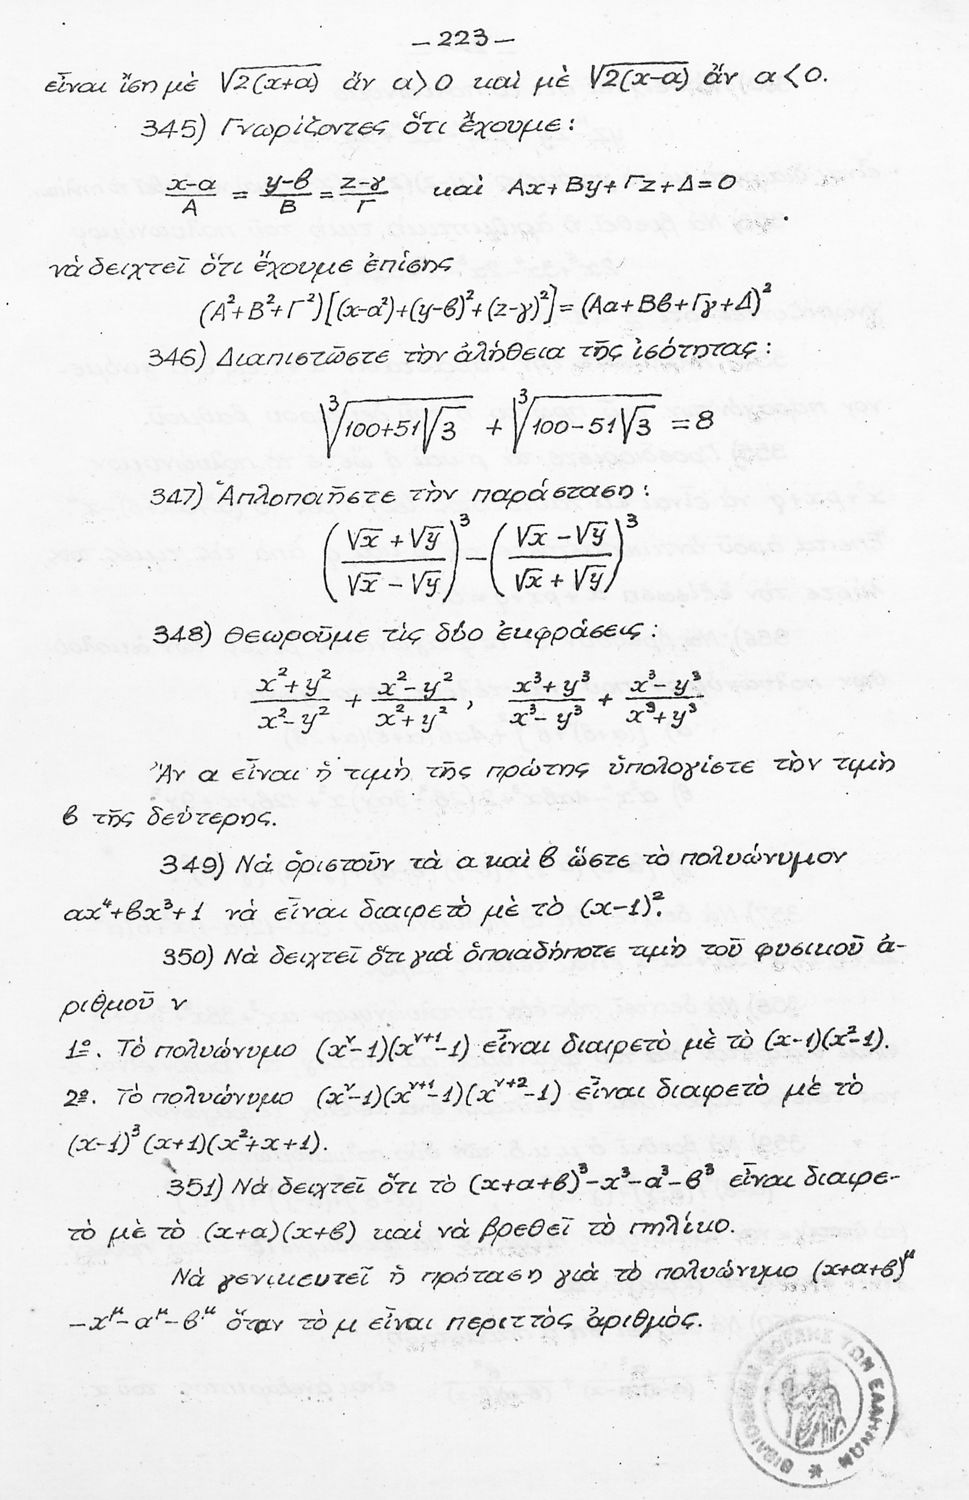 -223-
εἶναι ἴση μὲ √2(x+α) ἄν α>0 καὶ μὲ √2(x-α) ἄν α<0.
345) Γνωρίζοντες ὅτι ἔχουμε:
x-α/A = y-β/B = z-γ/Γ καὶ Ax+By+Γz+Δ=0
νὰ δειχτεῖ ὅτι ἔχουμε ἐπίσης
(A²+B²+Γ²)[(x-α²)+(y-β)²+(z-γ)²]=(Aα+Bβ+Γγ+Δ)²
346) Διαπιστῶστε τὴν ἀλήθεια τῆς ἰσότητας:
∛100+51√3 + ∛100-51√3 = 8
347) Ἁπλοποιῆστε τὴν παράσταση:
(√x+√y / √x-√y)³ - (√x-√y / √x+√y)³
348) Θεωροῦμε τὶς δύο ἐκφράσεις:
x²+y²/x²-y² + x²-y²/x²+y², x³+y³/x³-y³ + x³-y³/x³+y³
Ἄν α εἶναι ἡ τιμὴ τῆς πρώτης ὑπολογίστε τὴν τιμὴ
β τῆς δεύτερης.
349) Νὰ ὁριστοῦν τὰ α καὶ β ὥστε τὸ πολυώνυμον
αx⁴+βx³+1 νὰ εἶναι διαιρετὸ μὲ τὸ (x-1)².
350) Νὰ δειχτεῖ ὅτι γιὰ ὁποιαδήποτε τιμὴ τοῦ φυσικοῦ ἀ-
ριθμοῦ ν
1º. Τὸ πολυώνυμο (xᵛ-1)(xᵛ⁺¹-1) εἶναι διαιρετὸ μὲ τὸ (x-1)(x²-1).
2º. Τὸ πολυώνυμο (xᵛ-1)(xᵛ⁺¹-1)(xᵛ⁺²-1) εἶναι διαιρετὸ μὲ τὸ
(x-1)³(x+1)(x²+x+1).
351) Νὰ δειχτεῖ ὅτι τὸ (x+α+β)³-x³-α³-β³ εἶναι διαιρε-
τὸ μὲ τὸ (x+α)(x+β) καὶ νὰ βρεθεῖ τὸ πηλίκο.
Νὰ γενικευτεῖ ἡ πρόταση γιὰ τὸ πολυώνυμο (x+α+β)^μ
-x^μ-α^μ-β^μ ὅταν τὸ μ εἶναι περιττὸς ἀριθμὸς.
ΤΩΝ ΕΛΛΗΝΩΝ